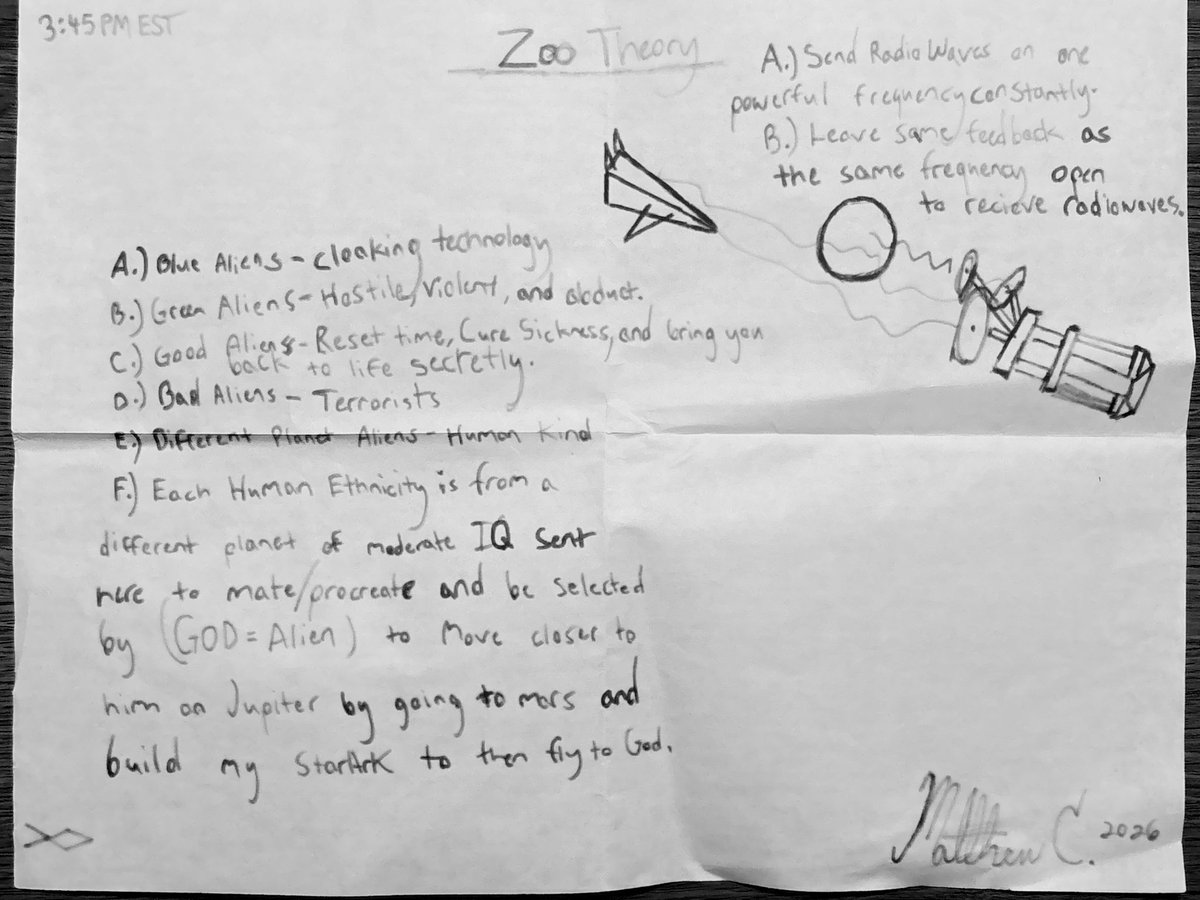 3:45PM EST
Zoo Theory
A.) Send Radio Waves on one
powerful frequency constantly.
B.) Leave same feedback as
the same frequency open
to recieve radiowaves.
A.) Blue Aliens - cloaking technology
B.) Green Aliens - Hostile/Violent, and abduct.
C.) Good Aliens - Reset time, Cure Sickness, and bring you
back to life secretly.
D.) Bad Aliens - Terrorists
E.) Different Planet Aliens - Human Kind
F.) Each Human Ethnicity is from a
different planet of moderate IQ sent
here to mate/procreate and be selected
by (GOD = Alien) to Move closer to
him on Jupiter by going to mars and
build my StarArk to then fly to God.
Matthew C. 2026